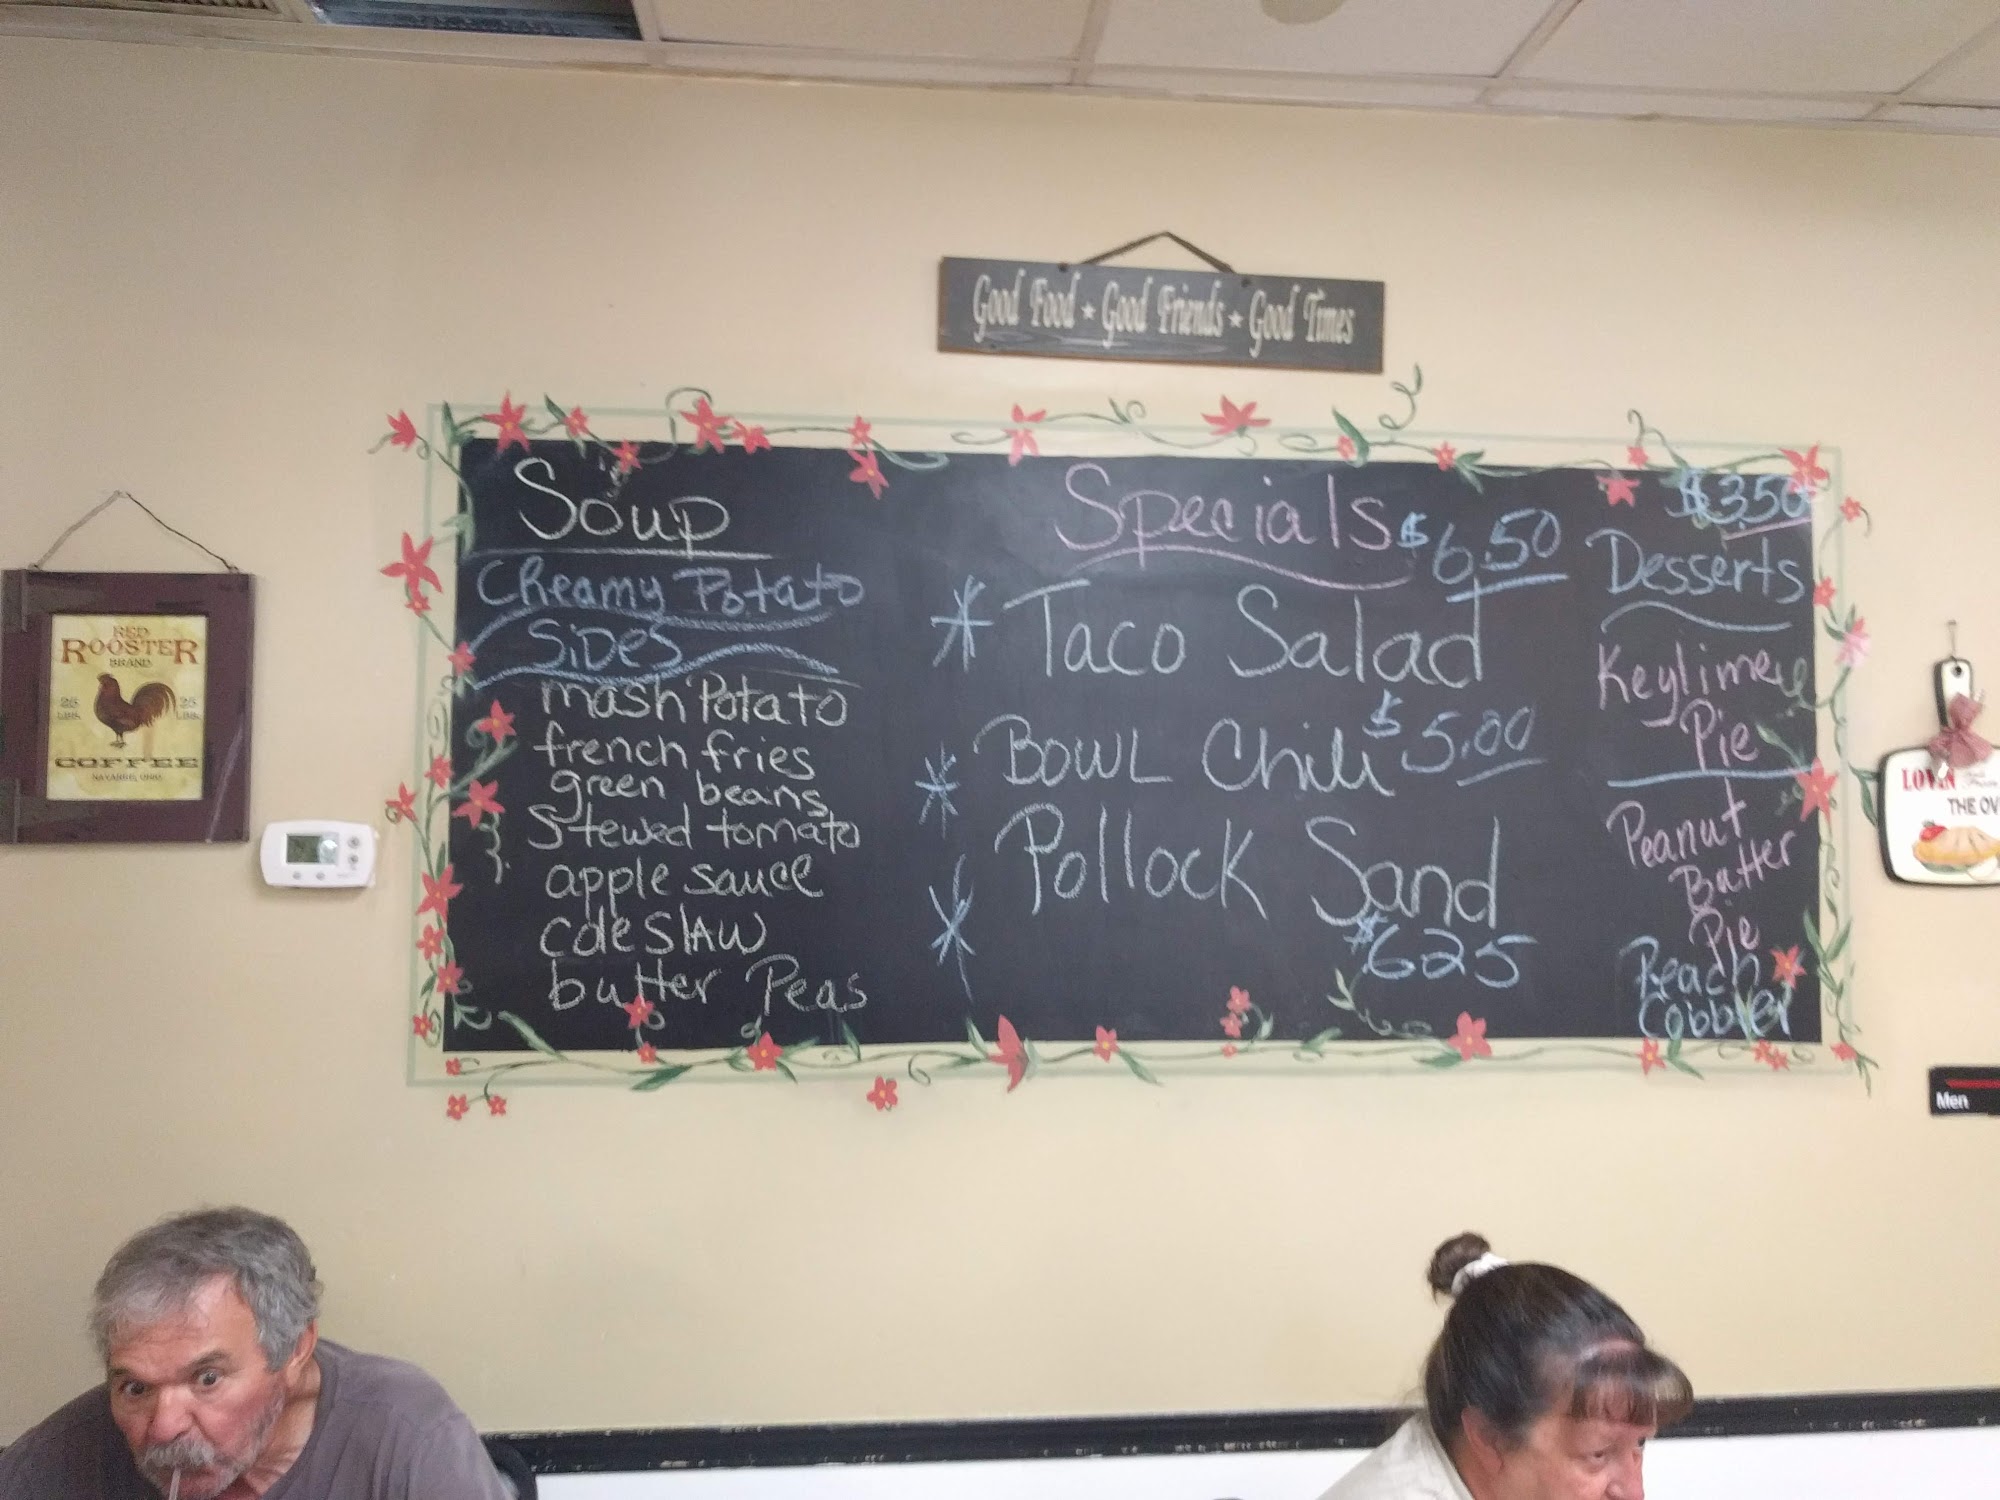 Good Food ★ Good Friends ★ Good Times
Soup
Creamy Potato
Sides
mash Potato
french fries
green beans
Stewed tomato
apple sauce
coleslaw
butter Peas
Specials
$6.50
Taco Salad
Bowl Chili $5.00
Pollock Sand
$625
$3.50
Desserts
Keylime
Pie
Peanut
Butter
Pie
Peach
Cobbler
RED
ROOSTER
BRAND
25 LBS.
25 LBS.
COFFEE
NAVARRE, OHIO
THE OV
Men